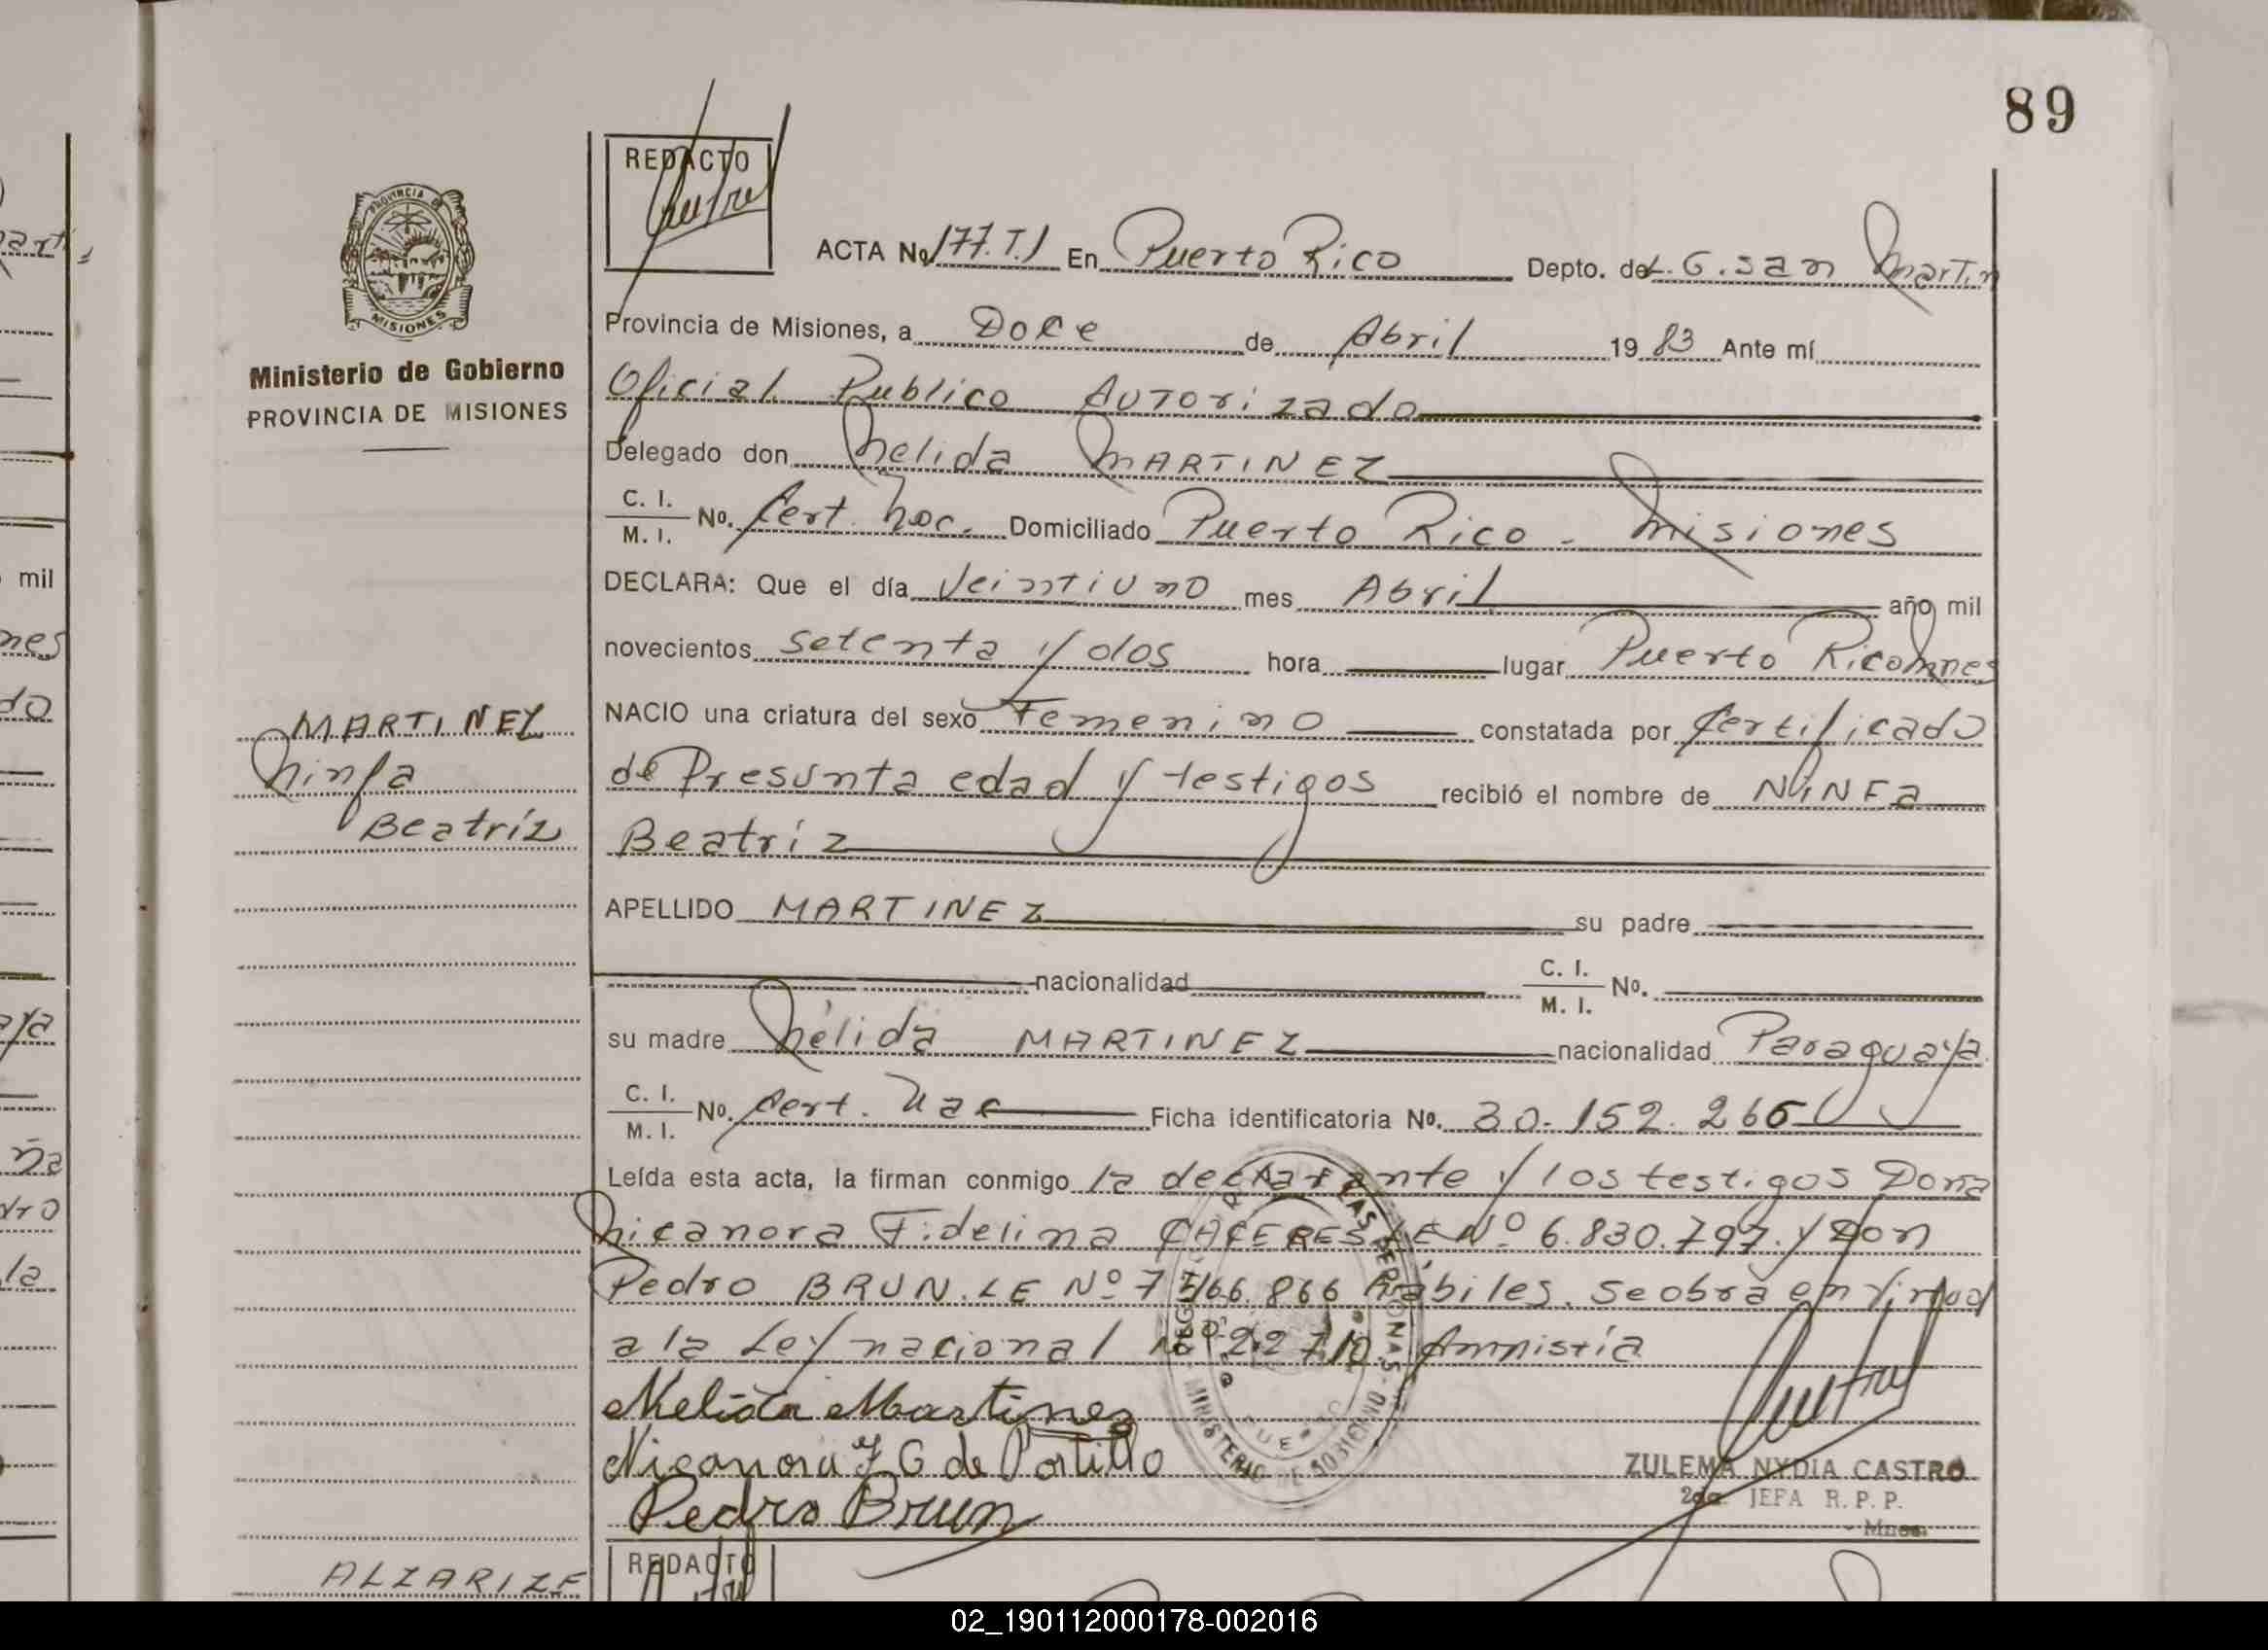 89
REDACTO
ACTA No 177.T.I En Puerto Rico Depto. de L.G.San Martin
Provincia de Misiones, a Doce de Abril 1983 Ante mí
Oficial Publico Autorizado
Delegado don Nelida MARTINEZ
C. I. M. I. No. Cert. Nac. Domiciliado Puerto Rico - Misiones
DECLARA: Que el día Veintiuno mes Abril año mil
novecientos setenta y dos hora lugar Puerto Rico Mnes
NACIO una criatura del sexo Femenino constatada por Certificado
de Presunta edad y testigos recibió el nombre de NINFa
Beatríz
APELLIDO MARTINEZ su padre
nacionalidad C. I. M. I. No.
su madre Nélida MARTINEZ nacionalidad Paraguaya
C. I. M. I. No. Cert. Nac Ficha identificatoria No. 30.152.266
Leída esta acta, la firman conmigo la declarante y los testigos Doña
Nicanora Fidelina CACERES LE Nº 6.830.797. y Don
Pedro BRUN. LE Nº 7.566.866 hábiles. Se obra en virtud
a la Ley nacional Nº 22.710 Amnistía
Nelida Martinez
Nicanora F C de Portillo
Pedro Brun
ZULEMA NYDIA CASTRO
2da. JEFA R. P. P.
Mnes.
MINISTERIO DE GOBIERNO
PROVINCIA DE
MISIONES
Ministerio de Gobierno
PROVINCIA DE MISIONES
MARTINEZ
Ninfa
Beatríz
ALZARIZE
REDACTO
mil
nes
do
aya
ña
dro
la
02_190112000178-002016